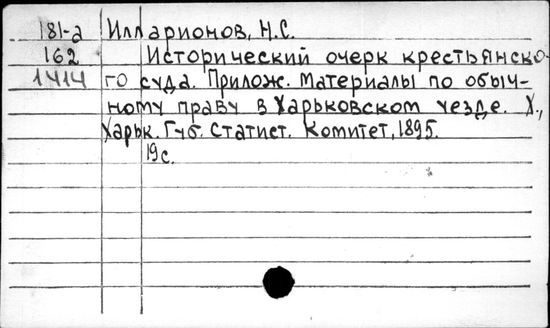 181-а Илларионов, Н.С.
162 Исторический очерк крестьянско-
1414 го суда. Прилож. Материалы по обыч-
ному праву в Харьковском уезде. Х.,
Харьк. Губ. Статист. Комитет, 1895.
19 с.